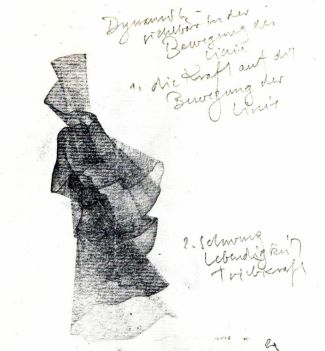 Dynamik
sichtbar in der
Bewegung der
Linie
1. die Kraft auf die
Bewegung der
Linie
2. Schwung
Lebendigkeit
Triebkraft